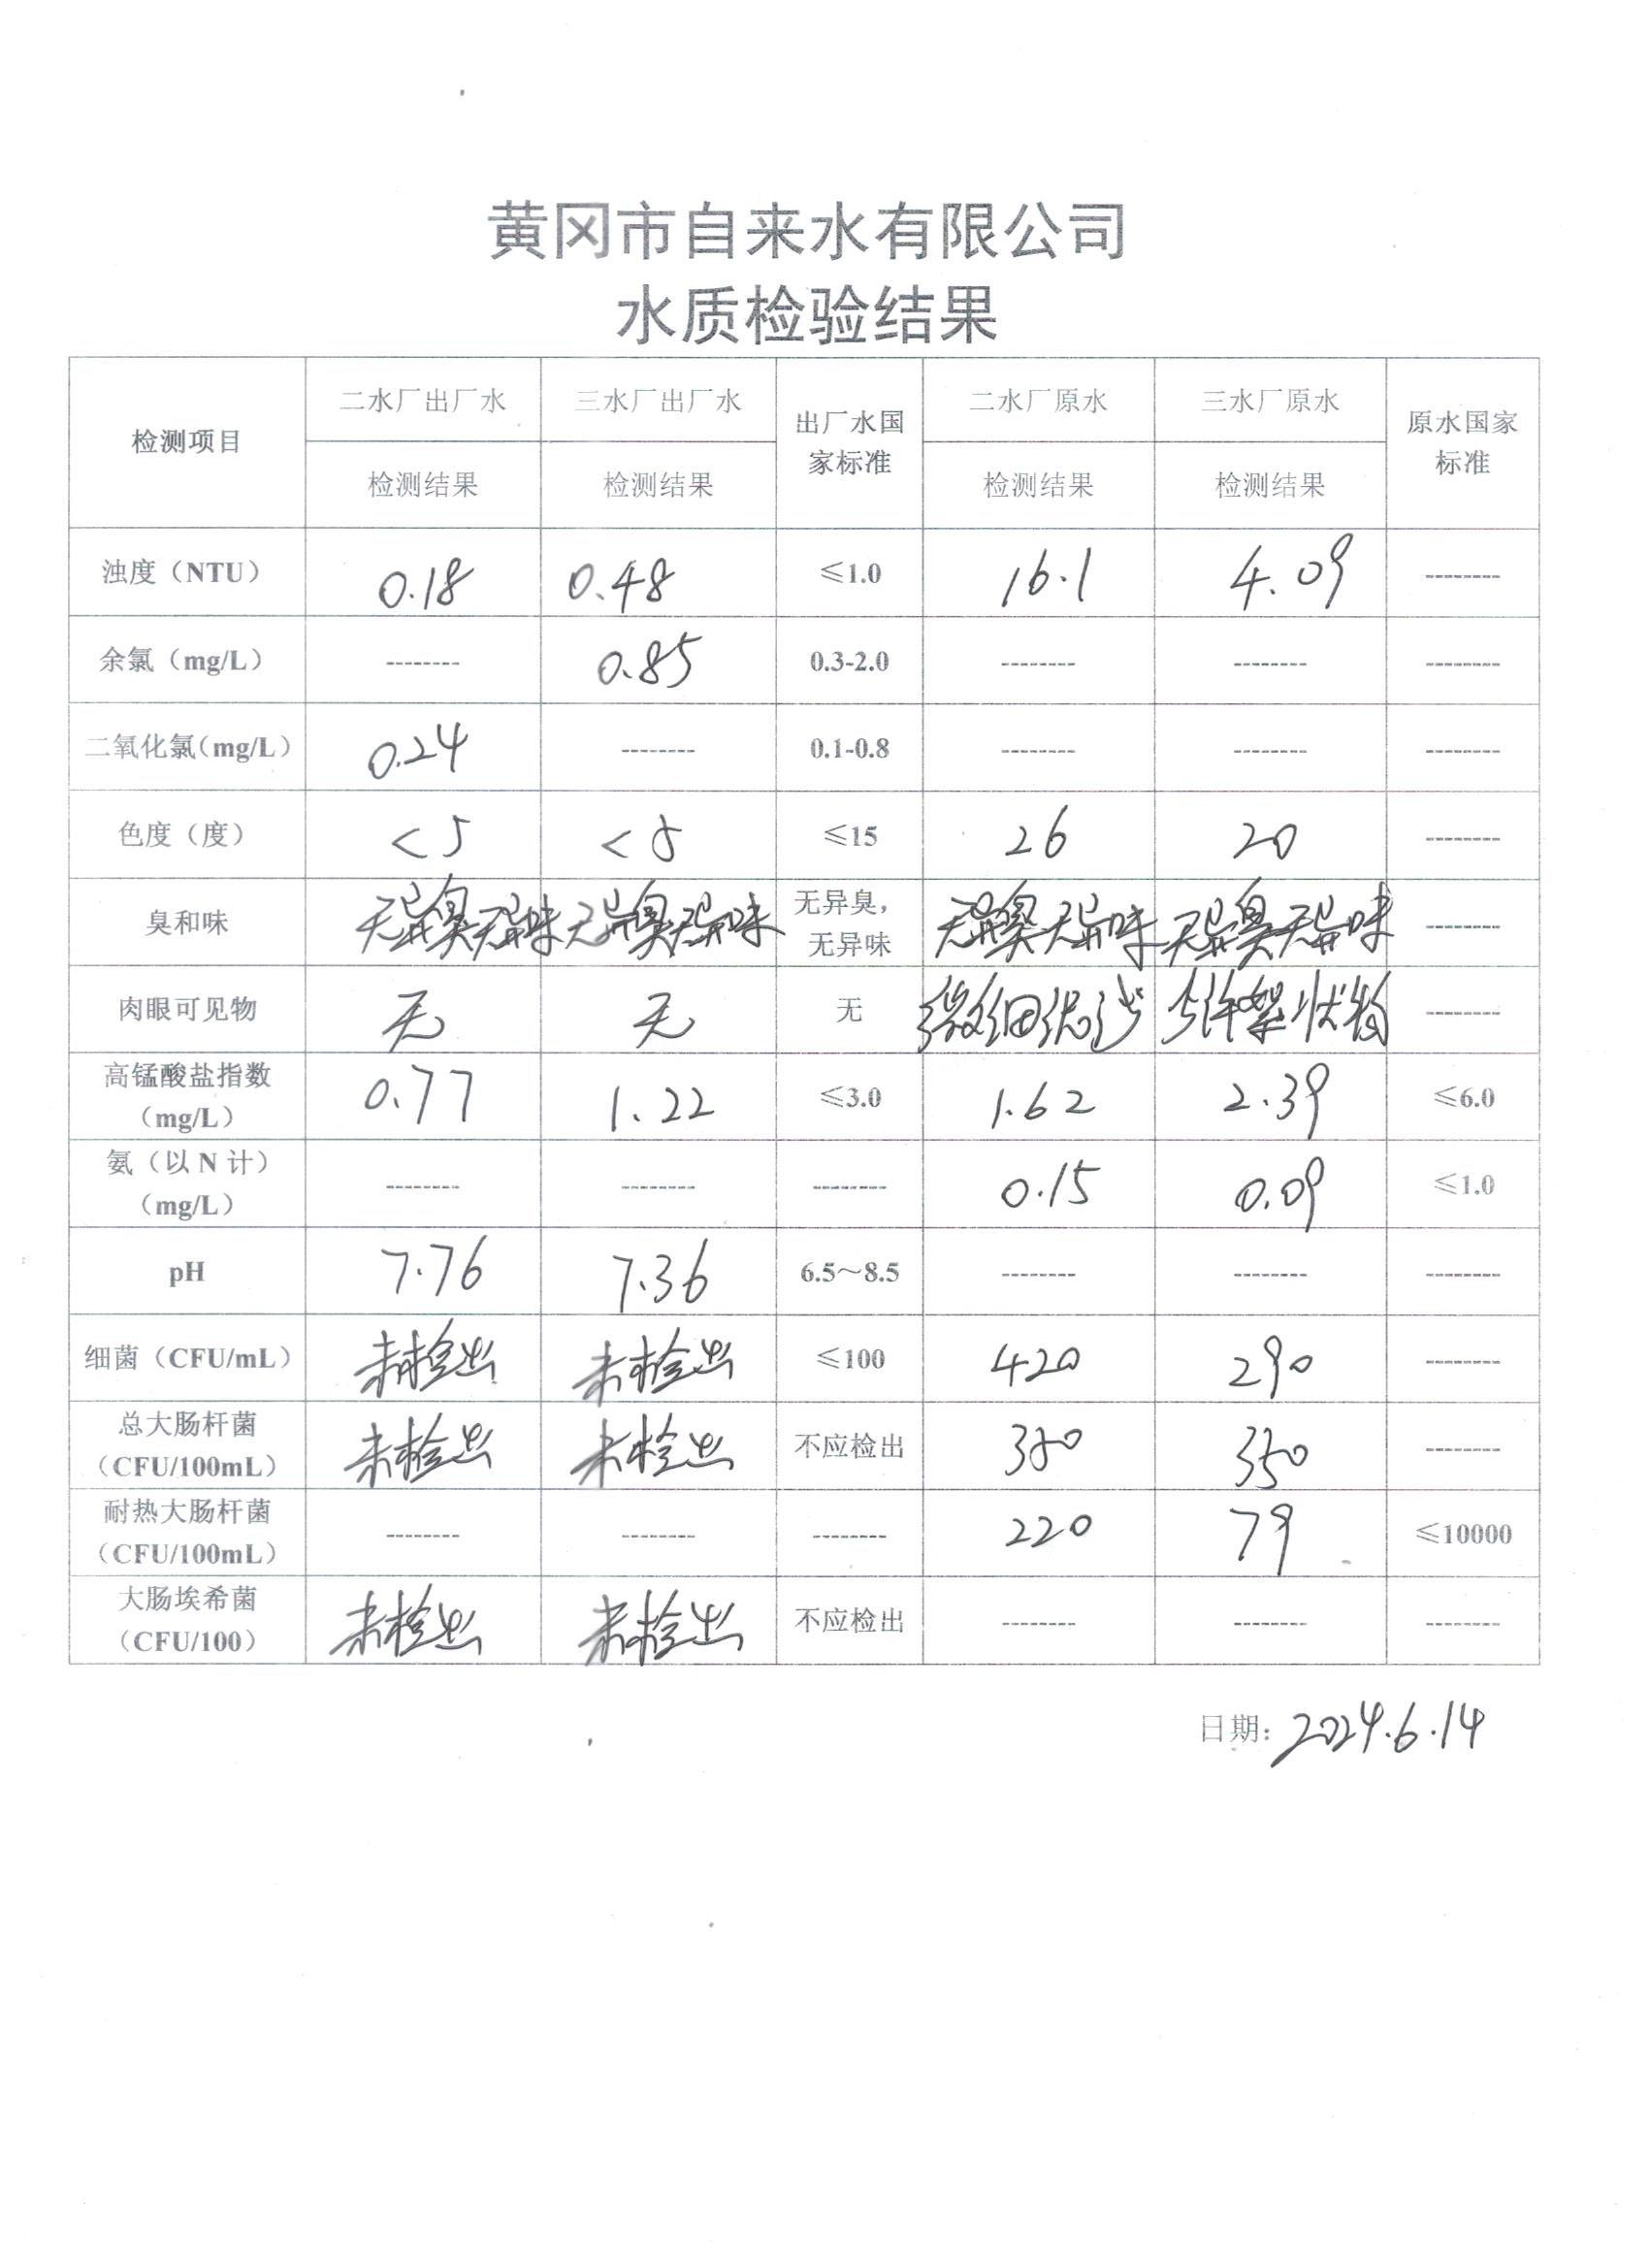 黄冈市自来水有限公司
水质检验结果
检测项目 二水厂出厂水 三水厂出厂水 出厂水国家标准 二水厂原水 三水厂原水 原水国家标准
检测结果 检测结果 检测结果 检测结果
浊度（NTU） 0.18 0.48 ≤1.0 16.1 4.09 --------
余氯（mg/L） -------- 0.85 0.3-2.0 -------- -------- --------
二氧化氯(mg/L) 0.24 -------- 0.1-0.8 -------- -------- --------
色度（度） <5 <5 ≤15 26 20 --------
臭和味 无异臭无异味 无异臭无异味 无异臭，无异味 无异臭无异味 无异臭无异味 --------
肉眼可见物 无 无 无 微细泥沙 少许絮状物 --------
高锰酸盐指数（mg/L） 0.77 1.22 ≤3.0 1.62 2.39 ≤6.0
氨（以N计）（mg/L） -------- -------- -------- 0.15 0.09 ≤1.0
pH 7.76 7.36 6.5～8.5 -------- -------- --------
细菌（CFU/mL） 未检出 未检出 ≤100 420 290 --------
总大肠杆菌（CFU/100mL） 未检出 未检出 不应检出 350 350 --------
耐热大肠杆菌（CFU/100mL） -------- -------- -------- 220 79 ≤10000
大肠埃希菌（CFU/100） 未检出 未检出 不应检出 -------- -------- --------
日期：2024.6.14